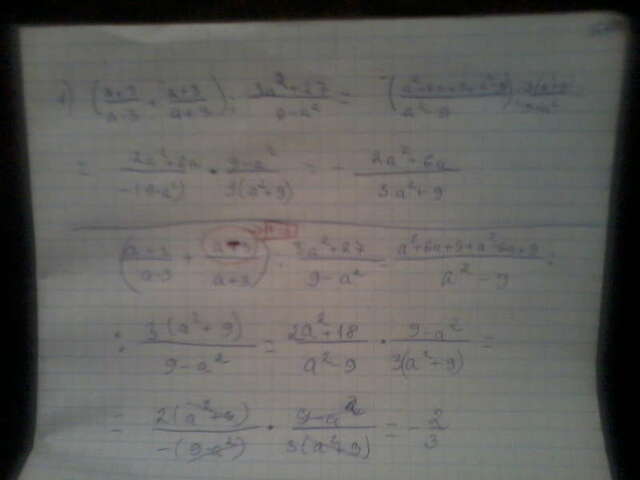 1) (a+3/a-3 + a+3/a+3) : 3a²+27/9-a² =
= 2a²+6a/-(9-a²) · 9-a²/3(a²+9) = - 2a²+6a/3a²+9
(a+3/a-3 + a-3/a+3) : 3a²+27/9-a² = a²+6a+9+a²-6a+9/a²-9 :
: 3(a²+9)/9-a² = 2a²+18/a²-9 · 9-a²/3(a²+9) =
= 2(a²+9)/-(9-a²) · 9-a²/3(a²+9) = - 2/3